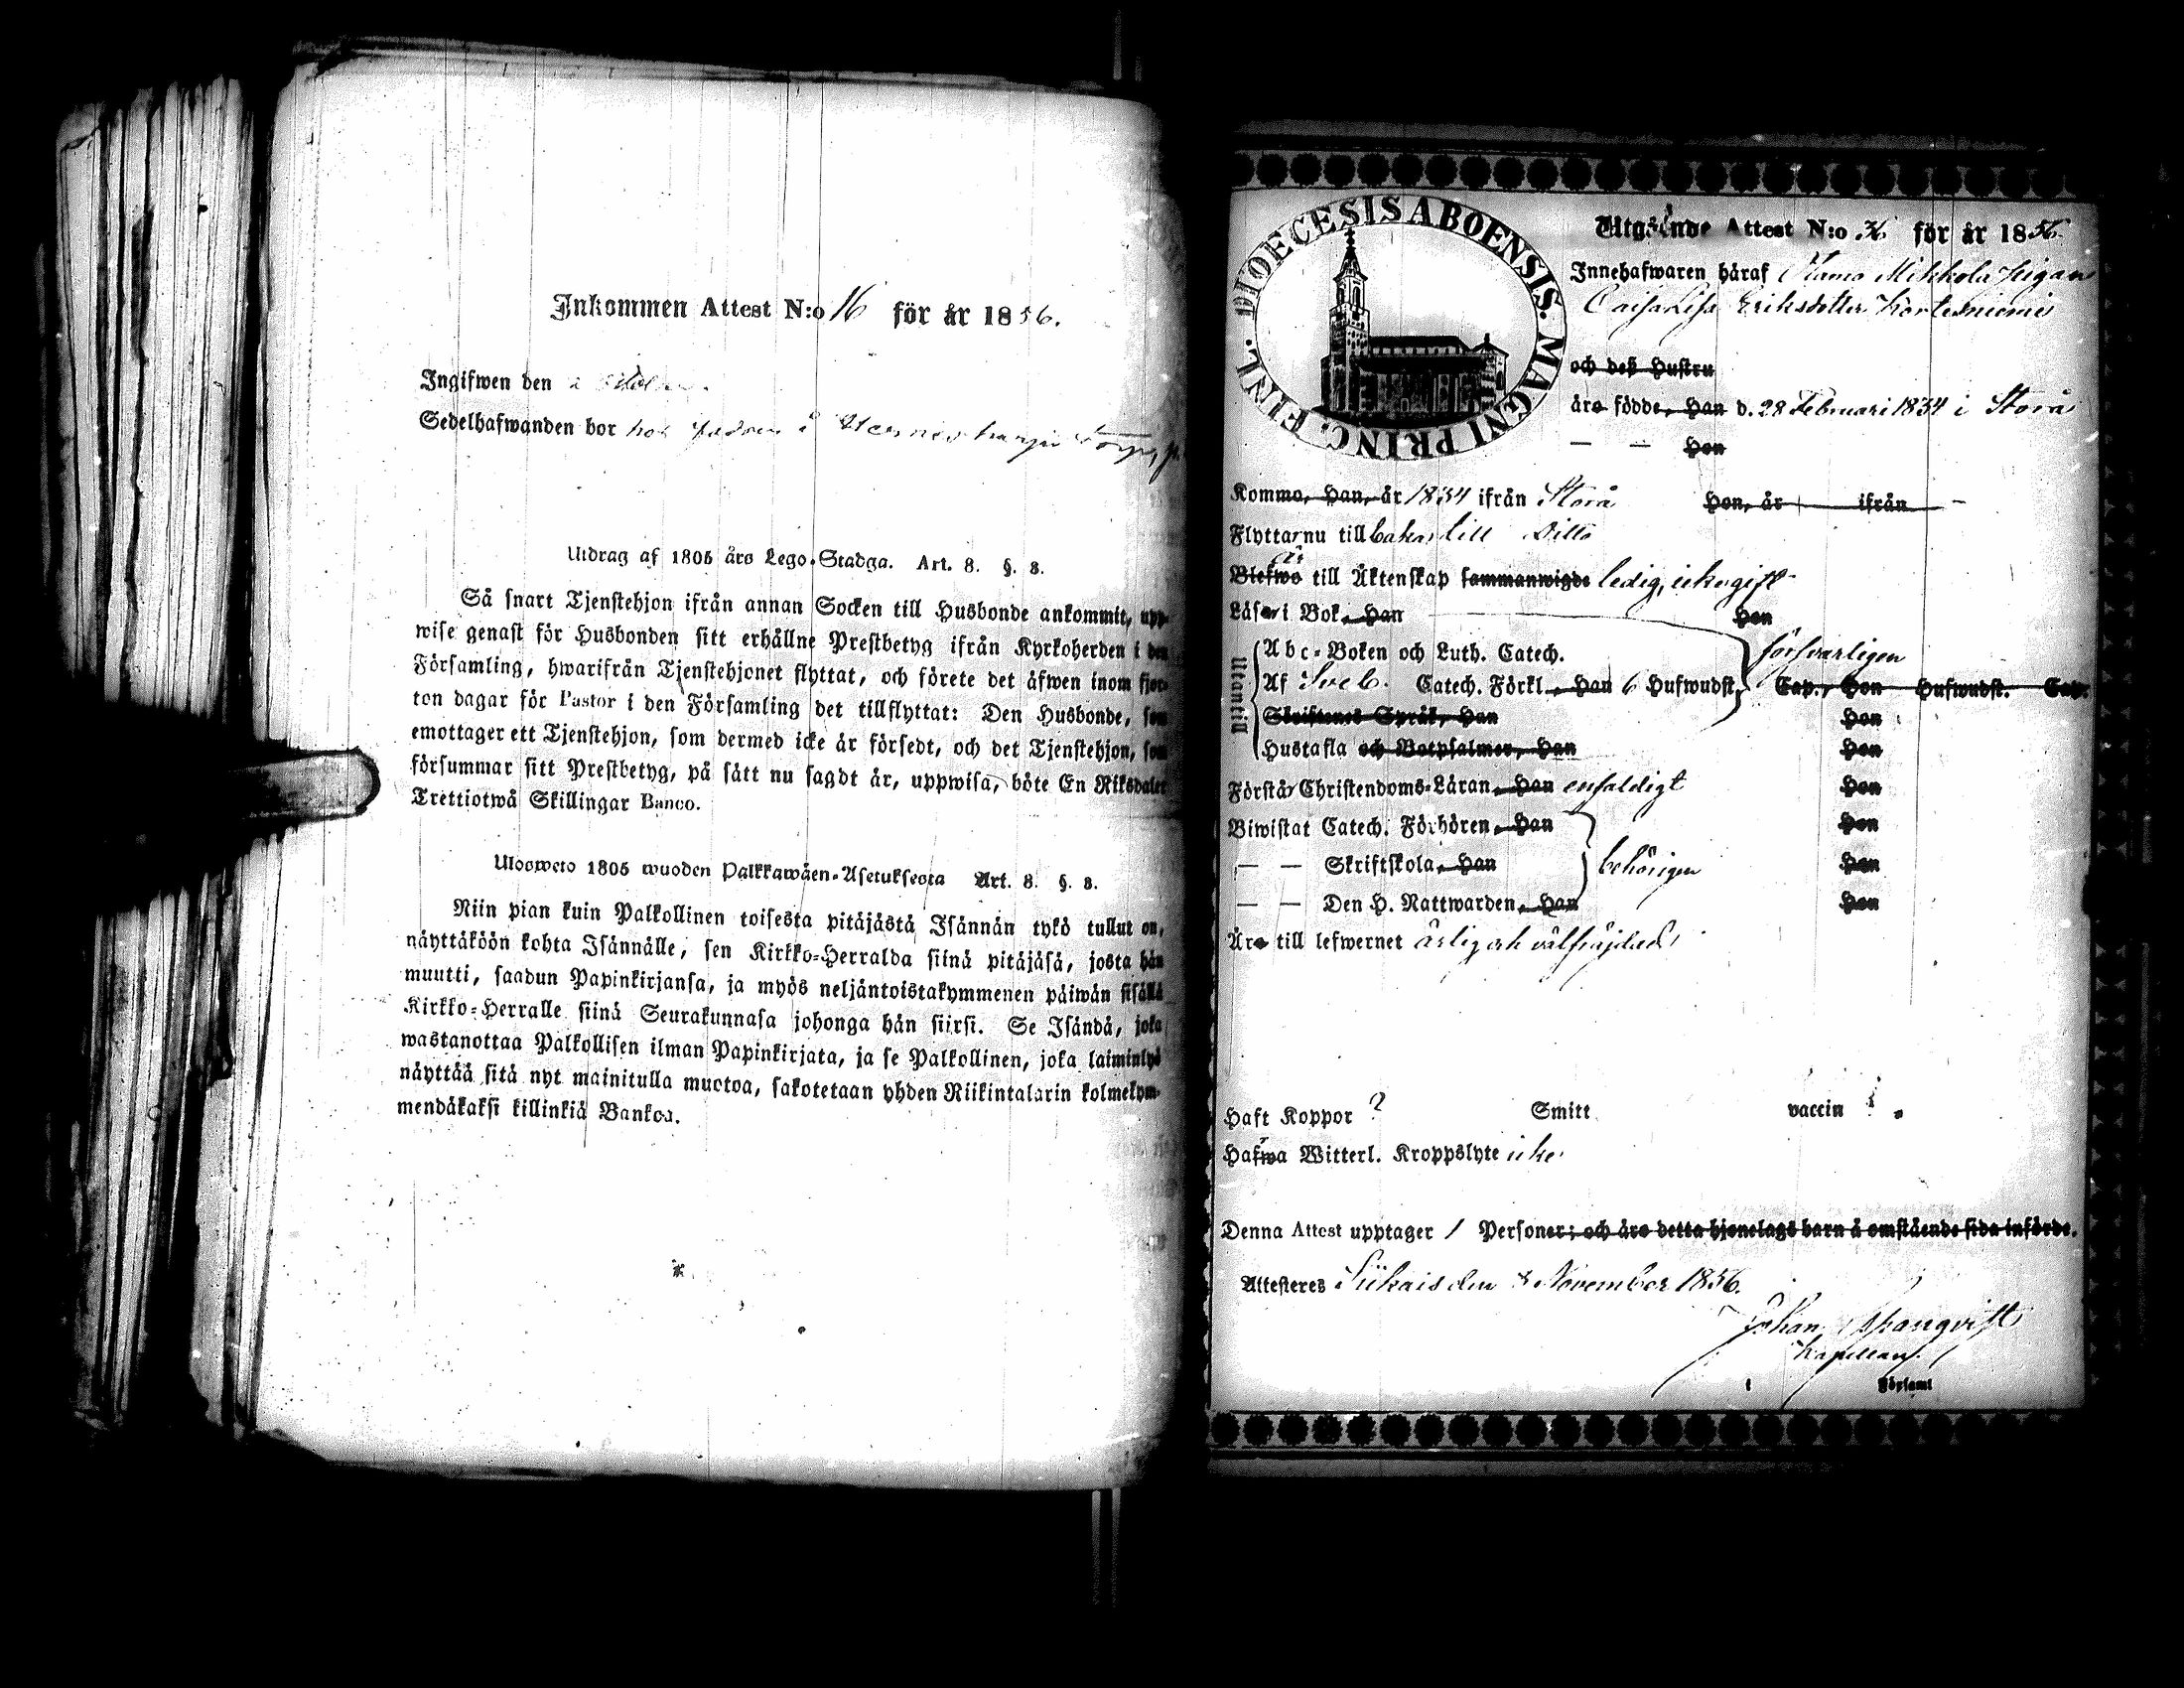 Inkommen Attest N:o 16 för år 1856.
Ingifwen den
Sedelhafwanden bor hos fadren å
Utdrag af 1805 års Lego-Stadga. Art. 8. §. 8.
Så snart Tjenstehjon ifrån annan Socken till Husbonde ankommit, upp-
wise genast för Husbonden sitt erhållne Prestbetyg ifrån Kyrkoherden i den
Församling, hwarifrån Tjenstehjonet flyttat, och förete det äfwen inom fjor-
ton dagar för Pastor i den Församling det tillflyttat: Den Husbonde, som
emottager ett Tjenstehjon, som dermed icke är försedt, och det Tjenstehjon, som
försummar sitt Prestbetyg, på sätt nu sagdt är, uppwisa, böte En Riksdaler
Trettiotwå Skillingar Banco.
Ulosweto 1805 wuoden Palkkawäen-Asetuksesta Art. 8. §. 8.
Niin pian kuin Palkollinen toisesta pitäjästä Isännän tykö tullut on,
näyttäköön kohta Isännälle, sen Kirkko-Herralda siinä pitäjäsä, josta hän
muutti, saadun Papinkirjansa, ja myös neljäntoistakymmenen päiwän sisällä
Kirkko-Herralle siinä Seurakunnasa johonga hän siirsi. Se Isändä, joka
wastanottaa Palkollisen ilman Papinkirjata, ja se Palkollinen, joka laiminlyö
näyttää sitä nyt mainitulla muotoa, sakotetaan yhden Riikintalarin kolmekym-
mendäkaksi killinkiä Bankoa.
DIOECESIS ABOENSIS. MAGNI PRINC. FINL.
Utgående Attest N:o 36 för år 1856.
Innehafwaren häraf Mikkola
Caisa Lisa Eriksdotter Kortesniemi
och deß Hustru
äro födde, Han d. 28 Februari 1834 i Storå
— — Hon
Komma, Han, år 1834 ifrån Storå Hon, år ifrån —
Flyttar nu till bakas till Ditto
är
Blefwo till Äktenskap sammanwigde ledig, icke gift
Läser i Bok, Han Hon
Utantill
Abc-Boken och Luth. Catech. försvarligen
Af Sveb. Catech. Förkl., Han 6 Hufwudst. Cap., Hon Hufwudst. Cap.
Skriftenes Språk, Han Hon
Hustafla och Botpsalmer, Han Hon
Förstår Christendoms-Läran, Han enfaldigt Hon
Biwistat Catech. Förhören, Han Hon
— — Skriftskola, Han behörigen Hon
— — Den H. Nattwarden, Han Hon
Äro till lefwernet ärlig och välfräjdad
Haft Koppor ? Smitt vaccin ?
Hafwa Witterl. Kroppslyte icke
Denna Attest upptager 1 Personer; och äro detta hjonelags barn å omstående sida införde.
Attesteres Siikais den 3 November 1856.
Johan
Kapellan.
i Församl